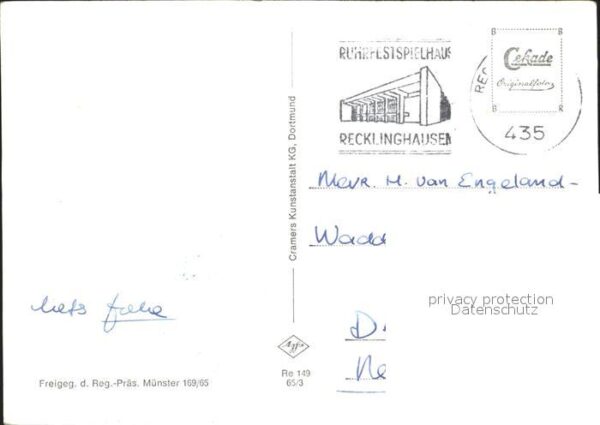 RUHRFESTSPIELHAUS
RECKLINGHAUSEN
REC
435
B B
Cekade
Originalfoto
B B
Mevr. H. van Engeland-
Wadd
D.
Ne
privacy protection
Datenschutz
Cramers Kunstanstalt KG, Dortmund
Agfa
Re 149
65/3
Freigeg. d. Reg.-Präs. Münster 169/65